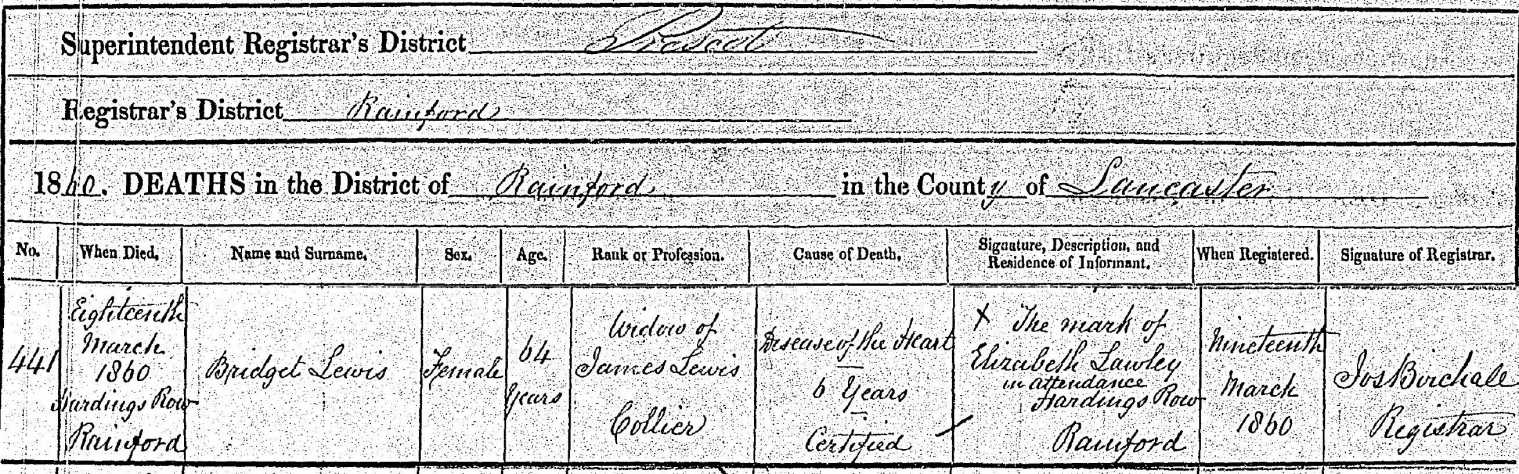 Superintendent Registrar's District Prescot
Registrar's District Rainford
1860. DEATHS in the District of Rainford in the County of Lancaster
No. When Died. Name and Surname. Sex. Age. Rank or Profession. Cause of Death. Signature, Description, and Residence of Informant. When Registered. Signature of Registrar.
441
Eighteenth
March
1860
Hardings Row
Rainford
Bridget Lewis
Female
64
Years
Widow of
James Lewis
Collier
Disease of the Heart
6 Years
Certified
X The mark of
Elizabeth Lawley
in attendance
Hardings Row
Rainford
Nineteenth
March
1860
Jos Birchall
Registrar